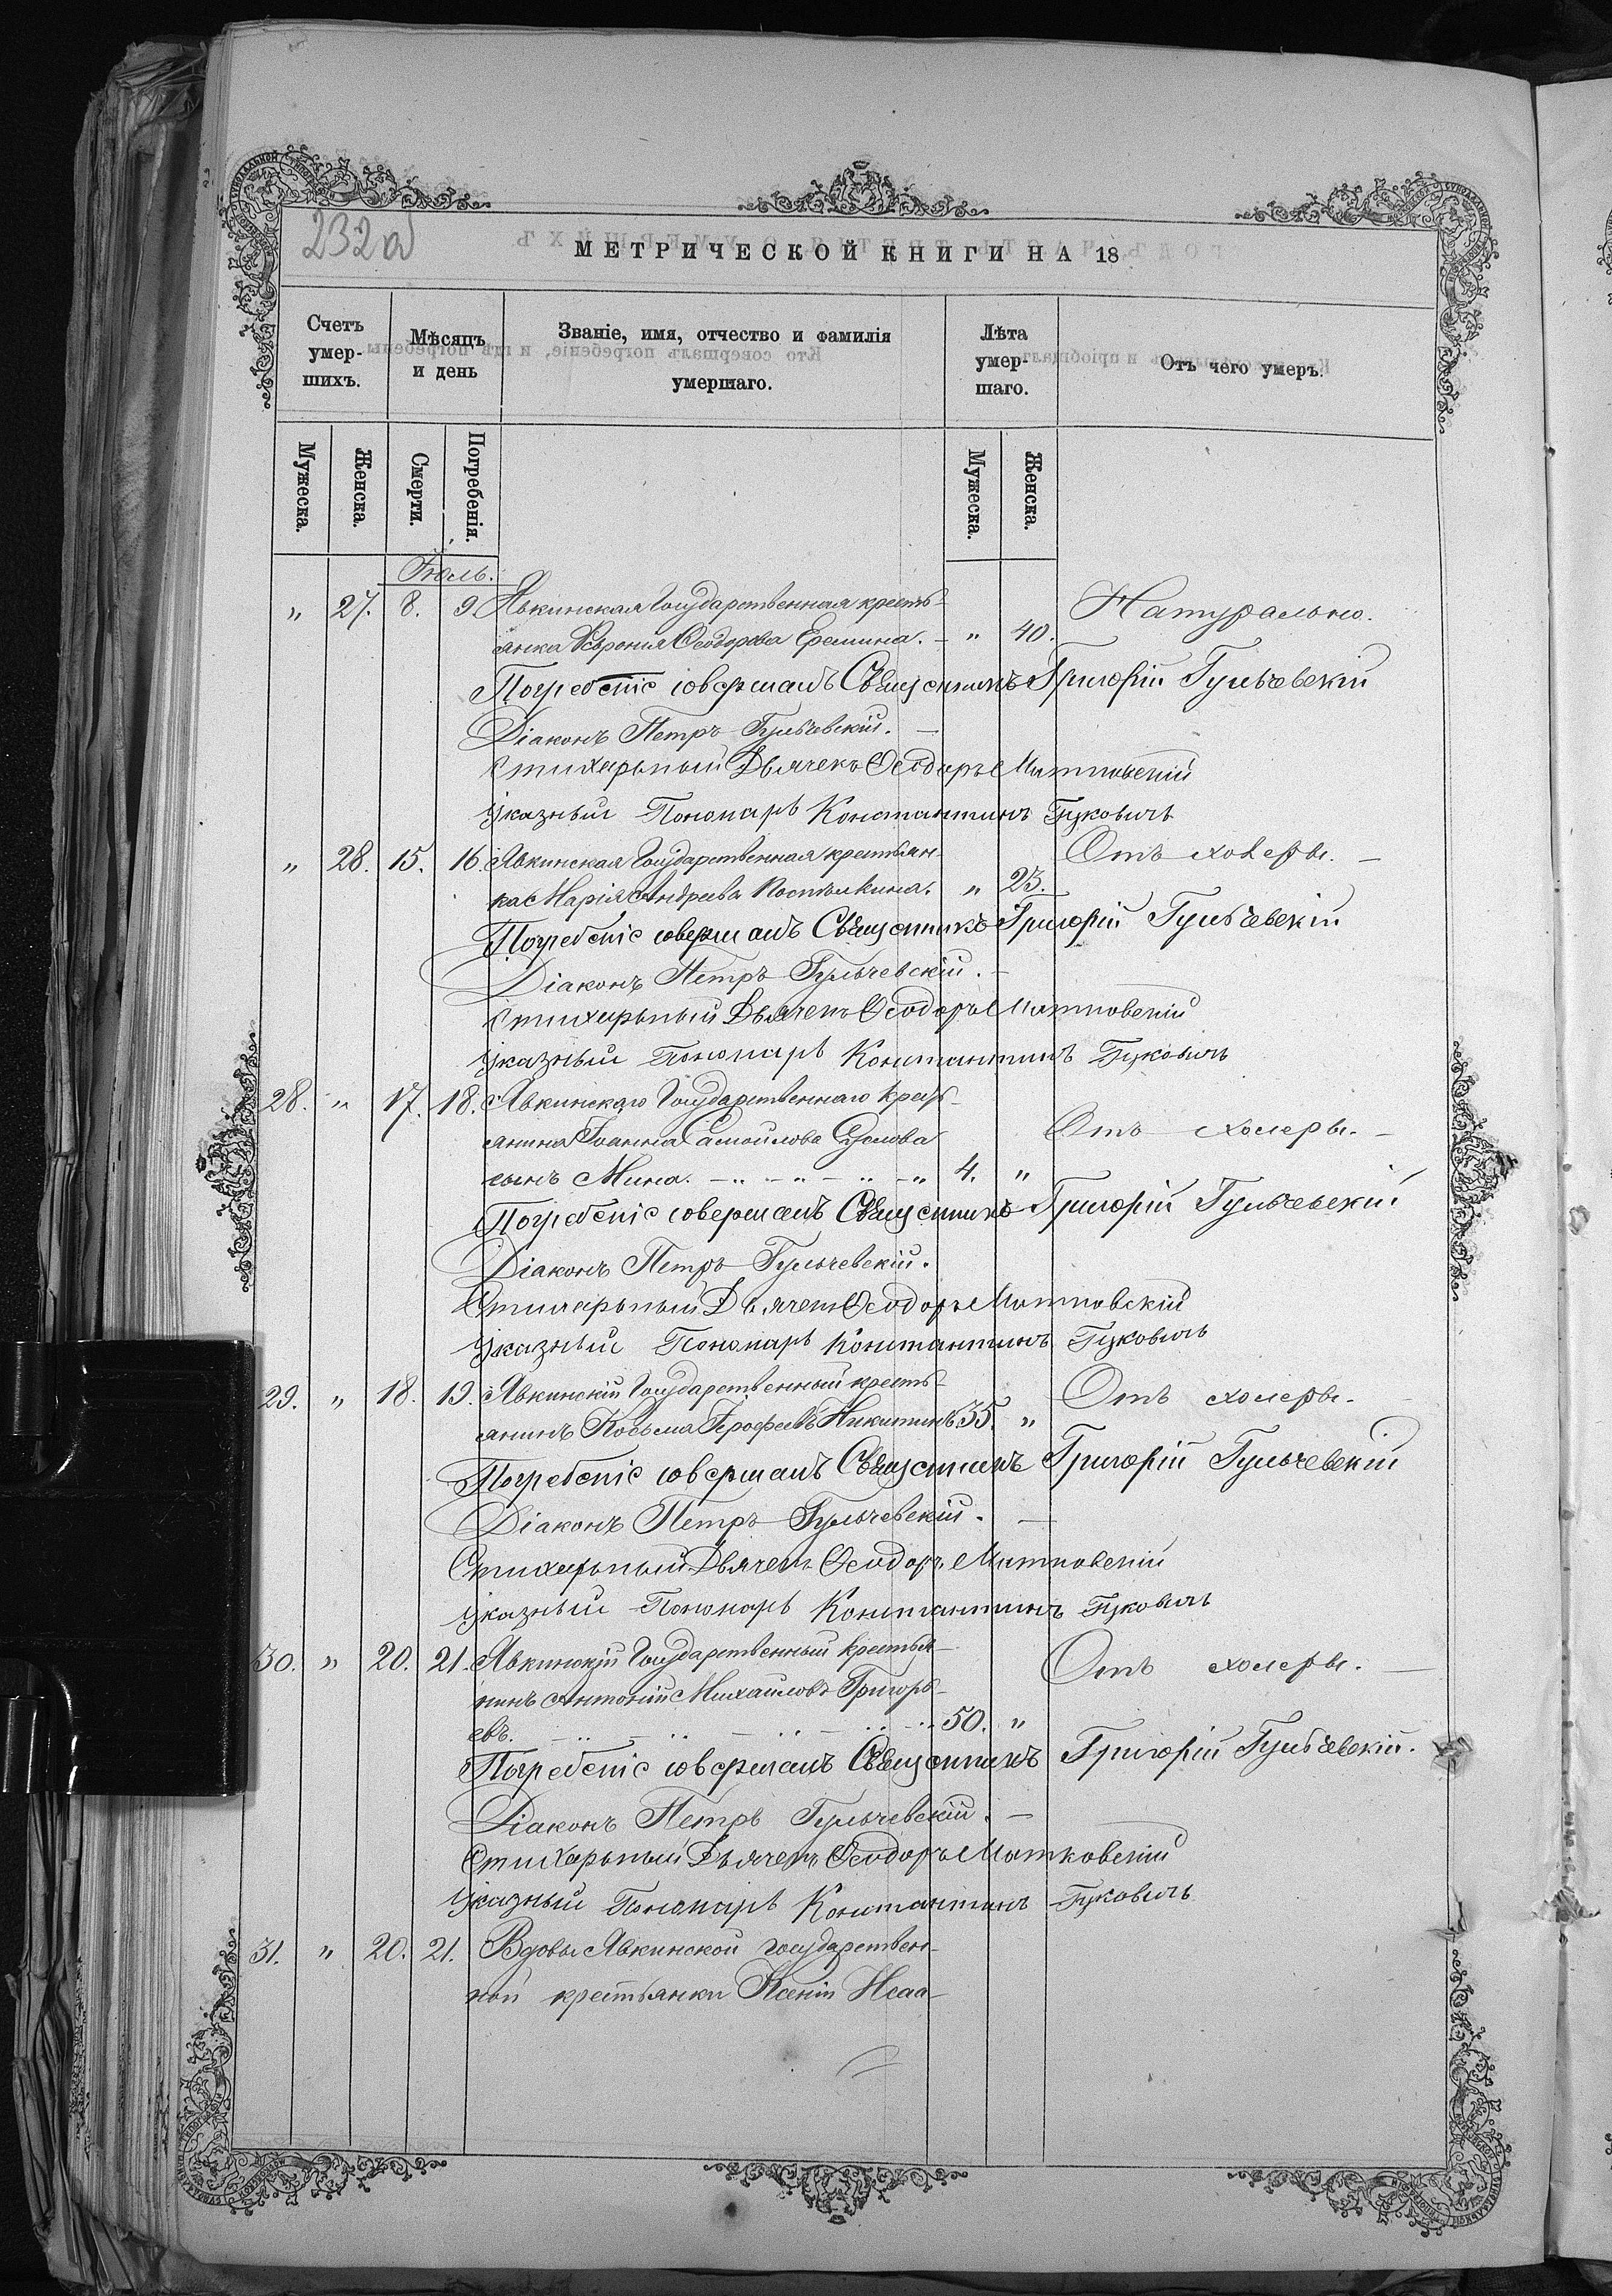 232 об
МЕТРИЧЕСКОЙ КНИГИ НА 18
Счетъ умер-шихъ.
Мѣсяцъ и день
Званіе, имя, отчество и фамилія умершаго.
Лѣта умер-шаго.
Отъ чего умеръ.
Мужеска.
Женска.
Смерти.
Погребенія.
Мужеска.
Женска.
Іюль.
" 27. 8. 9. Явкинская Государственная кресть-
янка Феодорова Еремина. - " 40. Натурально.
Погребеніе совершалъ Священникъ Григорій Гульчевскій
Діаконъ Петръ Гульчевскій. —
Стихарьный Дьячекъ Ѳеодоръ Матковскій
Указный Пономарь Константинъ Гуковичъ
" 28. 15. 16. Явкинская Государственная крестьян-
ка Марія Андреева " 25. Отъ холеры. —
Погребеніе совершалъ Священникъ Григорій Гульчевскій
Діаконъ Петръ Гульчевскій. —
Стихарьный Дьячекъ Ѳеодоръ Матковскій
Указный Пономарь Константинъ Гуковичъ
28. " 17. 18. Явкинскаго Государственнаго Кресть-
янина Іоанна Самойлова Отъ холеры. —
сынъ Мина. 4. "
Погребеніе совершалъ Священникъ Григорій Гульчевскій
Діаконъ Петръ Гульчевскій.
Стихарьный Дьячекъ Ѳеодоръ Матковскій
Указный Пономарь Константинъ Гуковичъ
29. " 18. 19. Явкинскій Государственный кресть- Отъ холеры. —
янинъ Косьма Ерофеевъ Никитинъ 35. "
Погребеніе совершалъ Священникъ Григорій Гульчевскій
Діаконъ Петръ Гульчевскій. —
Стихарьный Дьячекъ Ѳеодоръ Матковскій
Указный Пономарь Константинъ Гуковичъ
30. " 20. 21. Явкинскій Государственный крестья- Отъ холеры. —
нинъ Антоній Михайловъ Григорь-
евъ. 50. "
Погребеніе совершалъ Священникъ Григорій Гульчевскій.
Діаконъ Петръ Гульчевскій. —
Стихарьный Дьячекъ Ѳеодоръ Матковскій
Указный Пономарь Константинъ Гуковичъ
31. " 20. 21. Вдовы Явкинской государствен-
ной крестьянки Ксеніи Исаа-